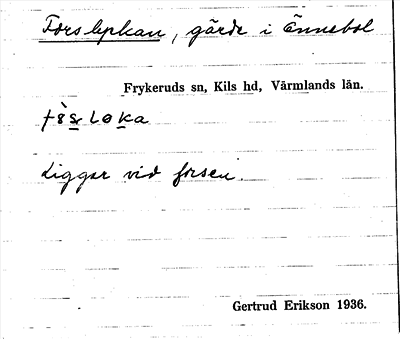 Forslyckan, gärde i Önnebol
Frykeruds sn, Kils hd, Värmlands län.
Ligger vid forsen.
Gertrud Erikson 1936.